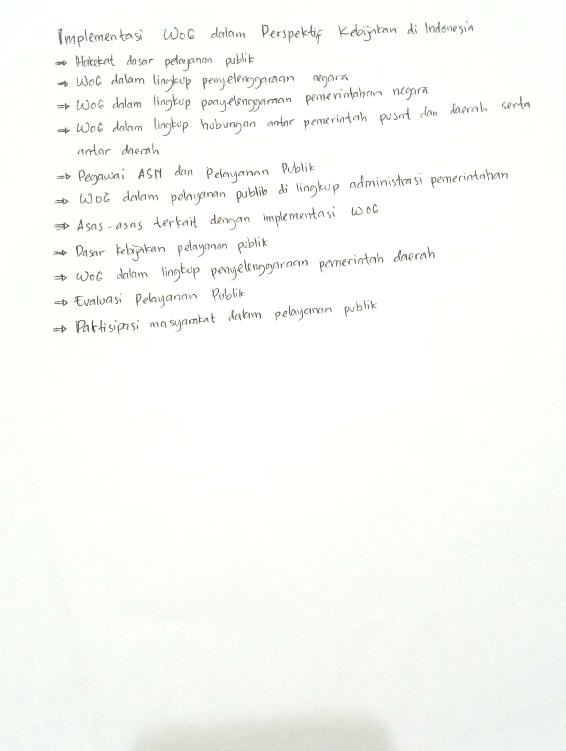 Implementasi WoG dalam Perspektif Kebijakan di Indonesia
⇒ Hakekat dasar pelayanan publik
⇒ WoG dalam lingkup penyelenggaraan negara
⇒ WoG dalam lingkup penyelenggaraan pemerintahan negara
⇒ WoG dalam lingkup hubungan antar pemerintah pusat dan daerah serta
antar daerah
⇒ Pegawai ASN dan Pelayanan Publik
⇒ WoG dalam pelayanan publik di lingkup administrasi pemerintahan
⇒ Asas-asas terkait dengan implementasi WoG
⇒ Dasar kebijakan pelayanan publik
⇒ WoG dalam lingkup penyelenggaraan pemerintah daerah
⇒ Evaluasi Pelayanan Publik
⇒ Partisipasi masyarakat dalam pelayanan publik